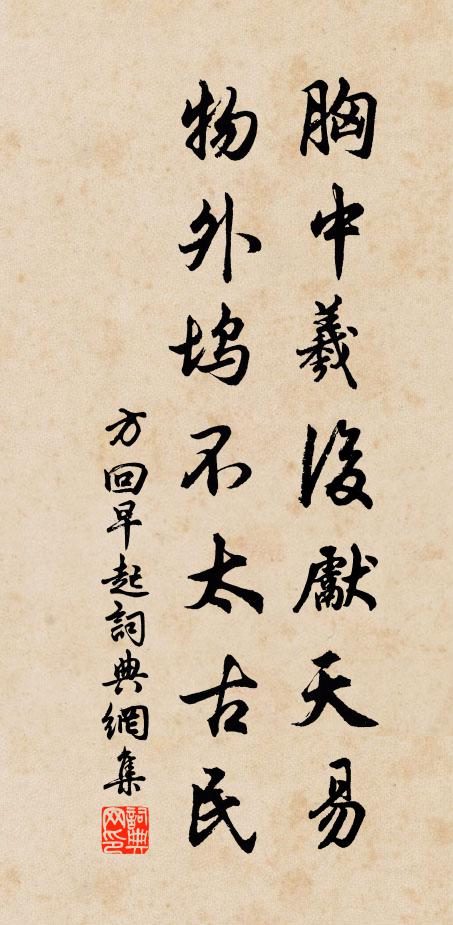 胸中羲後獻天易
物外塢不太古民
方回早起詞典網集
詞典网印